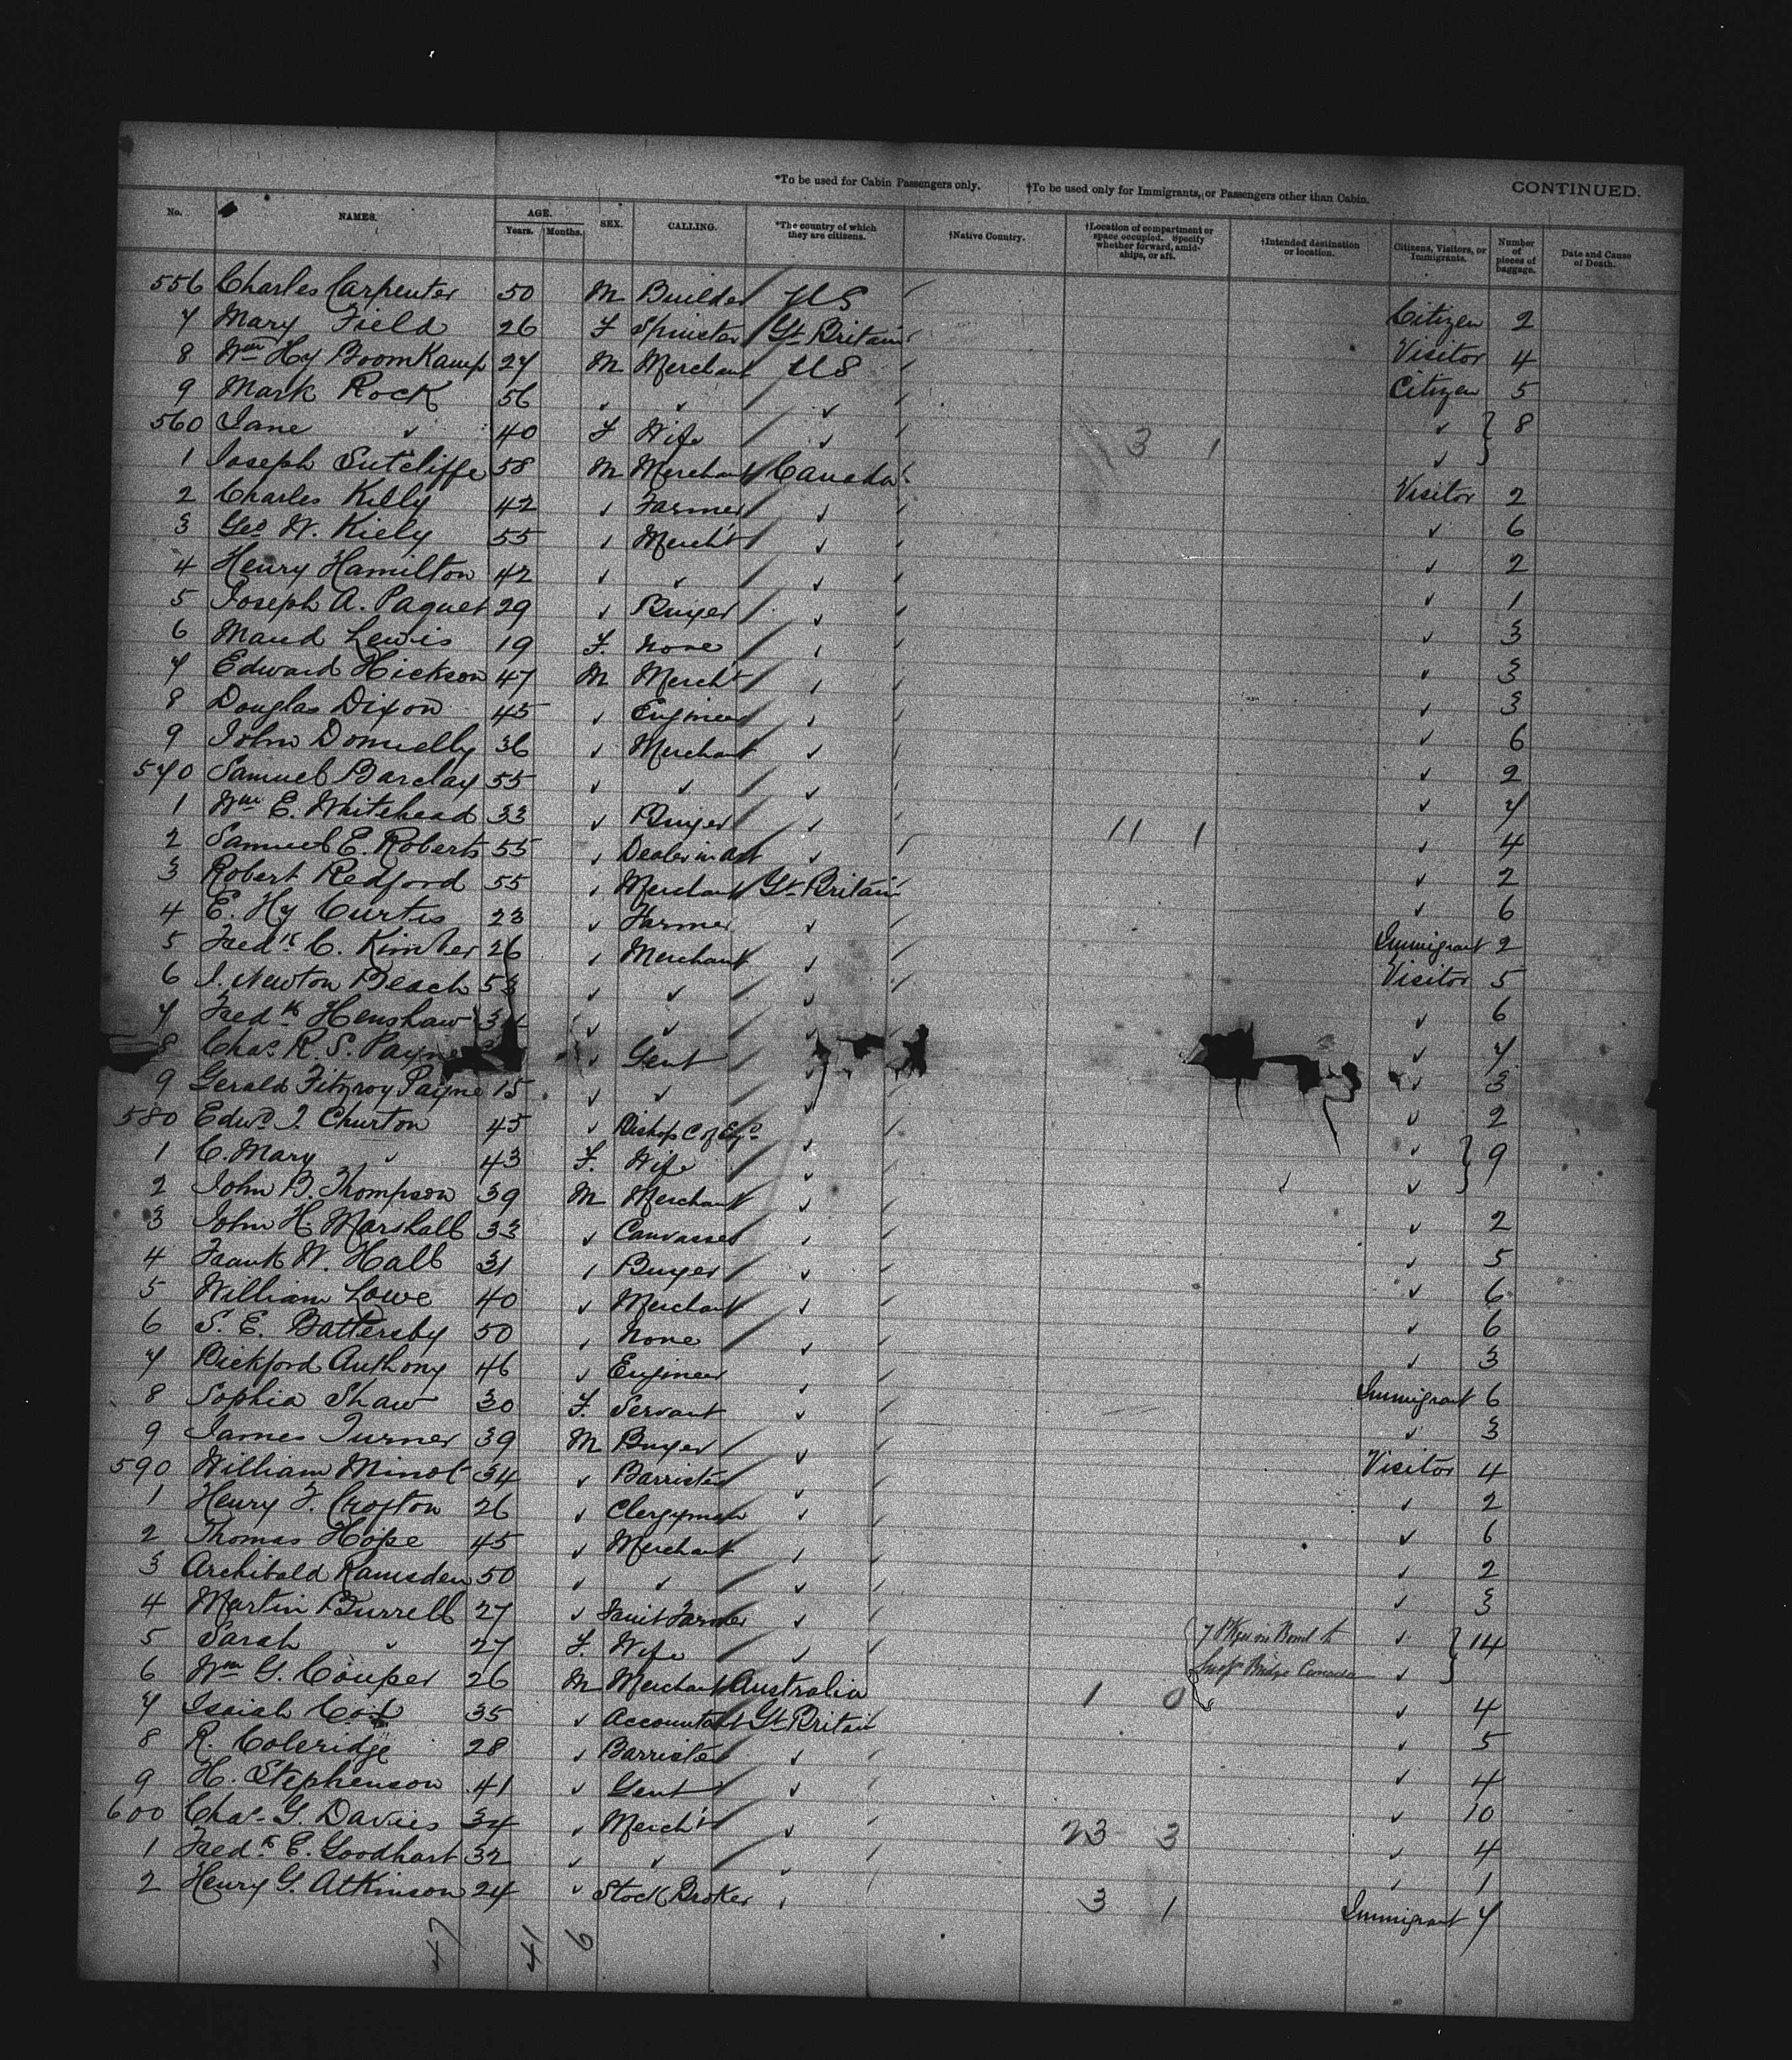 *To be used for Cabin Passengers only. †To be used only for Immigrants, or Passengers other than Cabin. CONTINUED.
No. NAMES. AGE. Years. Months. SEX. CALLING. *The country of which they are citizens. †Native Country. †Location of compartment or space occupied. Specify whether forward, amidships, or aft. †Intended destination or location. Citizens, Visitors, or Immigrants. Number of pieces of baggage. Date and Cause of Death.
556 Charles Carpenter 50 M Builder US Citizen 2
7 Mary Field 26 F Spinster Gt Britain Visitor 4
8 Wm Hy BoomKamp 27 M Merchant US Citizen 5
9 Mark Rock 56 ✓ ✓ ✓ ✓ } 8
560 Jane ✓ 40 F Wife ✓ 3 1 ✓
1 Joseph Sutcliffe 58 M Merchant Canada Visitor 2
2 Charles Kelly 42 ✓ Farmer ✓ ✓ 6
3 Geo W. Kiely 55 ✓ Mercht ✓ ✓ 2
4 Henry Hamilton 42 ✓ ✓ ✓ ✓ 1
5 Joseph A. Paquet 29 ✓ Buyer ✓ ✓ 3
6 Maud Lewis 19 F. None ✓ ✓ 3
7 Edward Hickson 47 M Mercht ✓ ✓ 3
8 Douglas Dixon 45 ✓ Engineer ✓ ✓ 6
9 John Donnelly 36 ✓ Merchant ✓ ✓ 2
570 Samuel Barclay 55 ✓ ✓ ✓ ✓ 7
1 Wm E. Whitehead 33 ✓ Buyer ✓ 11 1 ✓ 4
2 Samuel E. Roberts 55 ✓ Dealer in Art ✓ ✓ 2
3 Robert Redford 55 ✓ Merchant Gt Britain ✓ 6
4 E. Hy Curtis 23 ✓ Farmer ✓ Immigrant 2
5 Fredk C. Kimber 26 ✓ Merchant ✓ Visitor 5
6 J. Newton Beach 53 ✓ ✓ ✓ ✓ 6
7 Fredk Henshaw ✓ ✓ ✓ ✓ 7
8 Chas R. S. Payne ✓ Gent ✓ ✓ 3
9 Gerald Fitzroy Payne 15 ✓ ✓ ✓ ✓ 2
580 Edwd J. Churton 45 ✓ Bishop C of Egd ✓ ✓ } 9
1 C. Mary ✓ 43 F. Wife ✓ ✓
2 John B. Thompson 39 M Merchant ✓ ✓ 2
3 John H. Marshall 33 ✓ Canvasser ✓ ✓ 5
4 Frank W. Hall 31 ✓ Buyer ✓ ✓ 6
5 William Lowe 40 ✓ Merchant ✓ ✓ 6
6 S. E. Battersby 50 ✓ None ✓ ✓ 3
7 Bickford Anthony 46 ✓ Engineer ✓ Immigrant 6
8 Sophia Shaw 30 F. Servant ✓ ✓ 3
9 James Turner 39 M Buyer ✓ Visitor 4
590 William Minot 34 ✓ Barrister ✓ ✓ 2
1 Henry F. Crofton 26 ✓ Clergyman ✓ ✓ 6
2 Thomas Hope 45 ✓ Merchant ✓ ✓ 2
3 Archibald Ramsden 50 ✓ ✓ ✓ ✓ 3
4 Martin Burrell 27 ✓ Fruit Farmer ✓ 7 Pkgs in Bond to ✓ } 14
5 Sarah ✓ 27 F. Wife ✓ Susp Bridge Canada ✓
6 Wm G. Couper 26 M Merchant Australia 1 0 ✓ 4
7 Isaiah Cox 35 ✓ Accountant Gt Britain ✓ 5
8 R. Coleridge 28 ✓ Barrister ✓ ✓ 4
9 H. Stephenson 41 ✓ Gent ✓ ✓ 10
600 Chas G. Davies 34 ✓ Mercht ✓ 23 3 ✓ 4
1 Fredk E. Goodhart 32 ✓ ✓ ✓ ✓ 1
2 Henry G. Atkinson 24 ✓ Stock Broker ✓ 3 1 Immigrant 7
47 41 6